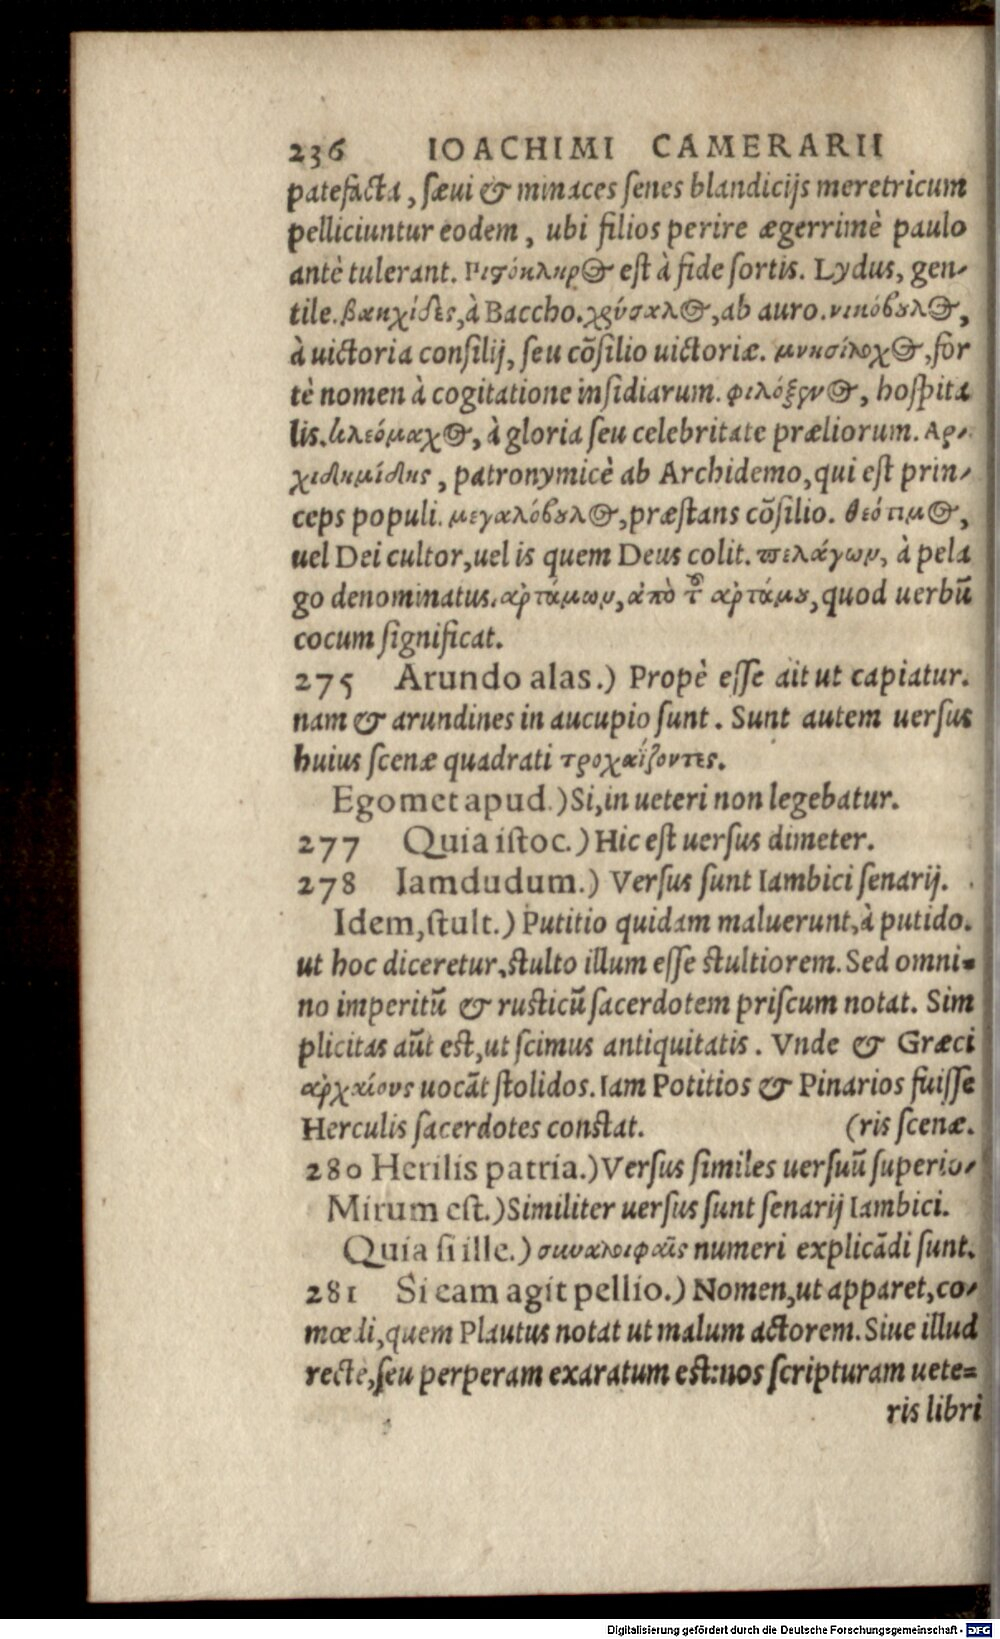 236 IOACHIMI CAMERARII
patefacta, sæui & minaces senes blandicijs meretricum
pelliciuntur eodem, ubi filios perire ægerrimè paulo
antè tulerant. Πιςόκληρος est à fide sortis. Lydus, gen-
tile. βακχίδες, à Baccho. χρύσαλος, ab auro. νικόβουλος,
à uictoria consilij, seu cõsilio uictoriæ. μνησίλοχος, for
tè nomen à cogitatione insidiarum. φιλόξενος, hospita
lis. κλεόμαχος, à gloria seu celebritate præliorum. Αρ-
χιδημίδης, patronymicè ab Archidemo, qui est prin-
ceps populi. μεγαλόβουλος, præstans cõsilio. θεότιμος,
uel Dei cultor, uel is quem Deus colit. πελάγων, à pela
go denominatus. ἀρτάμων, ἀπὸ τοῦ ἀρτάμου, quod uerbũ
cocum significat.
275 Arundo alas.) Propè esse ait ut capiatur.
nam & arundines in aucupio sunt. Sunt autem uersus
huius scenæ quadrati τροχαΐζοντες.
Egomet apud.) Si, in ueteri non legebatur.
277 Quia istoc.) Hic est uersus dimeter.
278 Iamdudum.) Versus sunt Iambici senarij.
Idem, stult.) Putitio quidam maluerunt, à putido.
ut hoc diceretur, stulto illum esse stultiorem. Sed omni-
no imperitũ & rusticũ sacerdotem priscum notat. Sim
plicitas aũt est, ut scimus antiquitatis. Vnde & Græci
ἀρχαίους uocãt stolidos. Iam Potitios & Pinarios fuisse
Herculis sacerdotes constat. (ris scenæ.
280 Herilis patria.) Versus similes uersuũ superio-
Mirum est.) Similiter uersus sunt senarij Iambici.
Quia si ille.) συναλοιφαῖς numeri explicãdi sunt.
281 Si eam agit pellio.) Nomen, ut apparet, co-
mœdi, quem Plautus notat ut malum actorem. Siue illud
recte, seu perperam exaratum est: nos scripturam uete=
ris libri
Digitalisierung gefördert durch die Deutsche Forschungsgemeinschaft - DFG